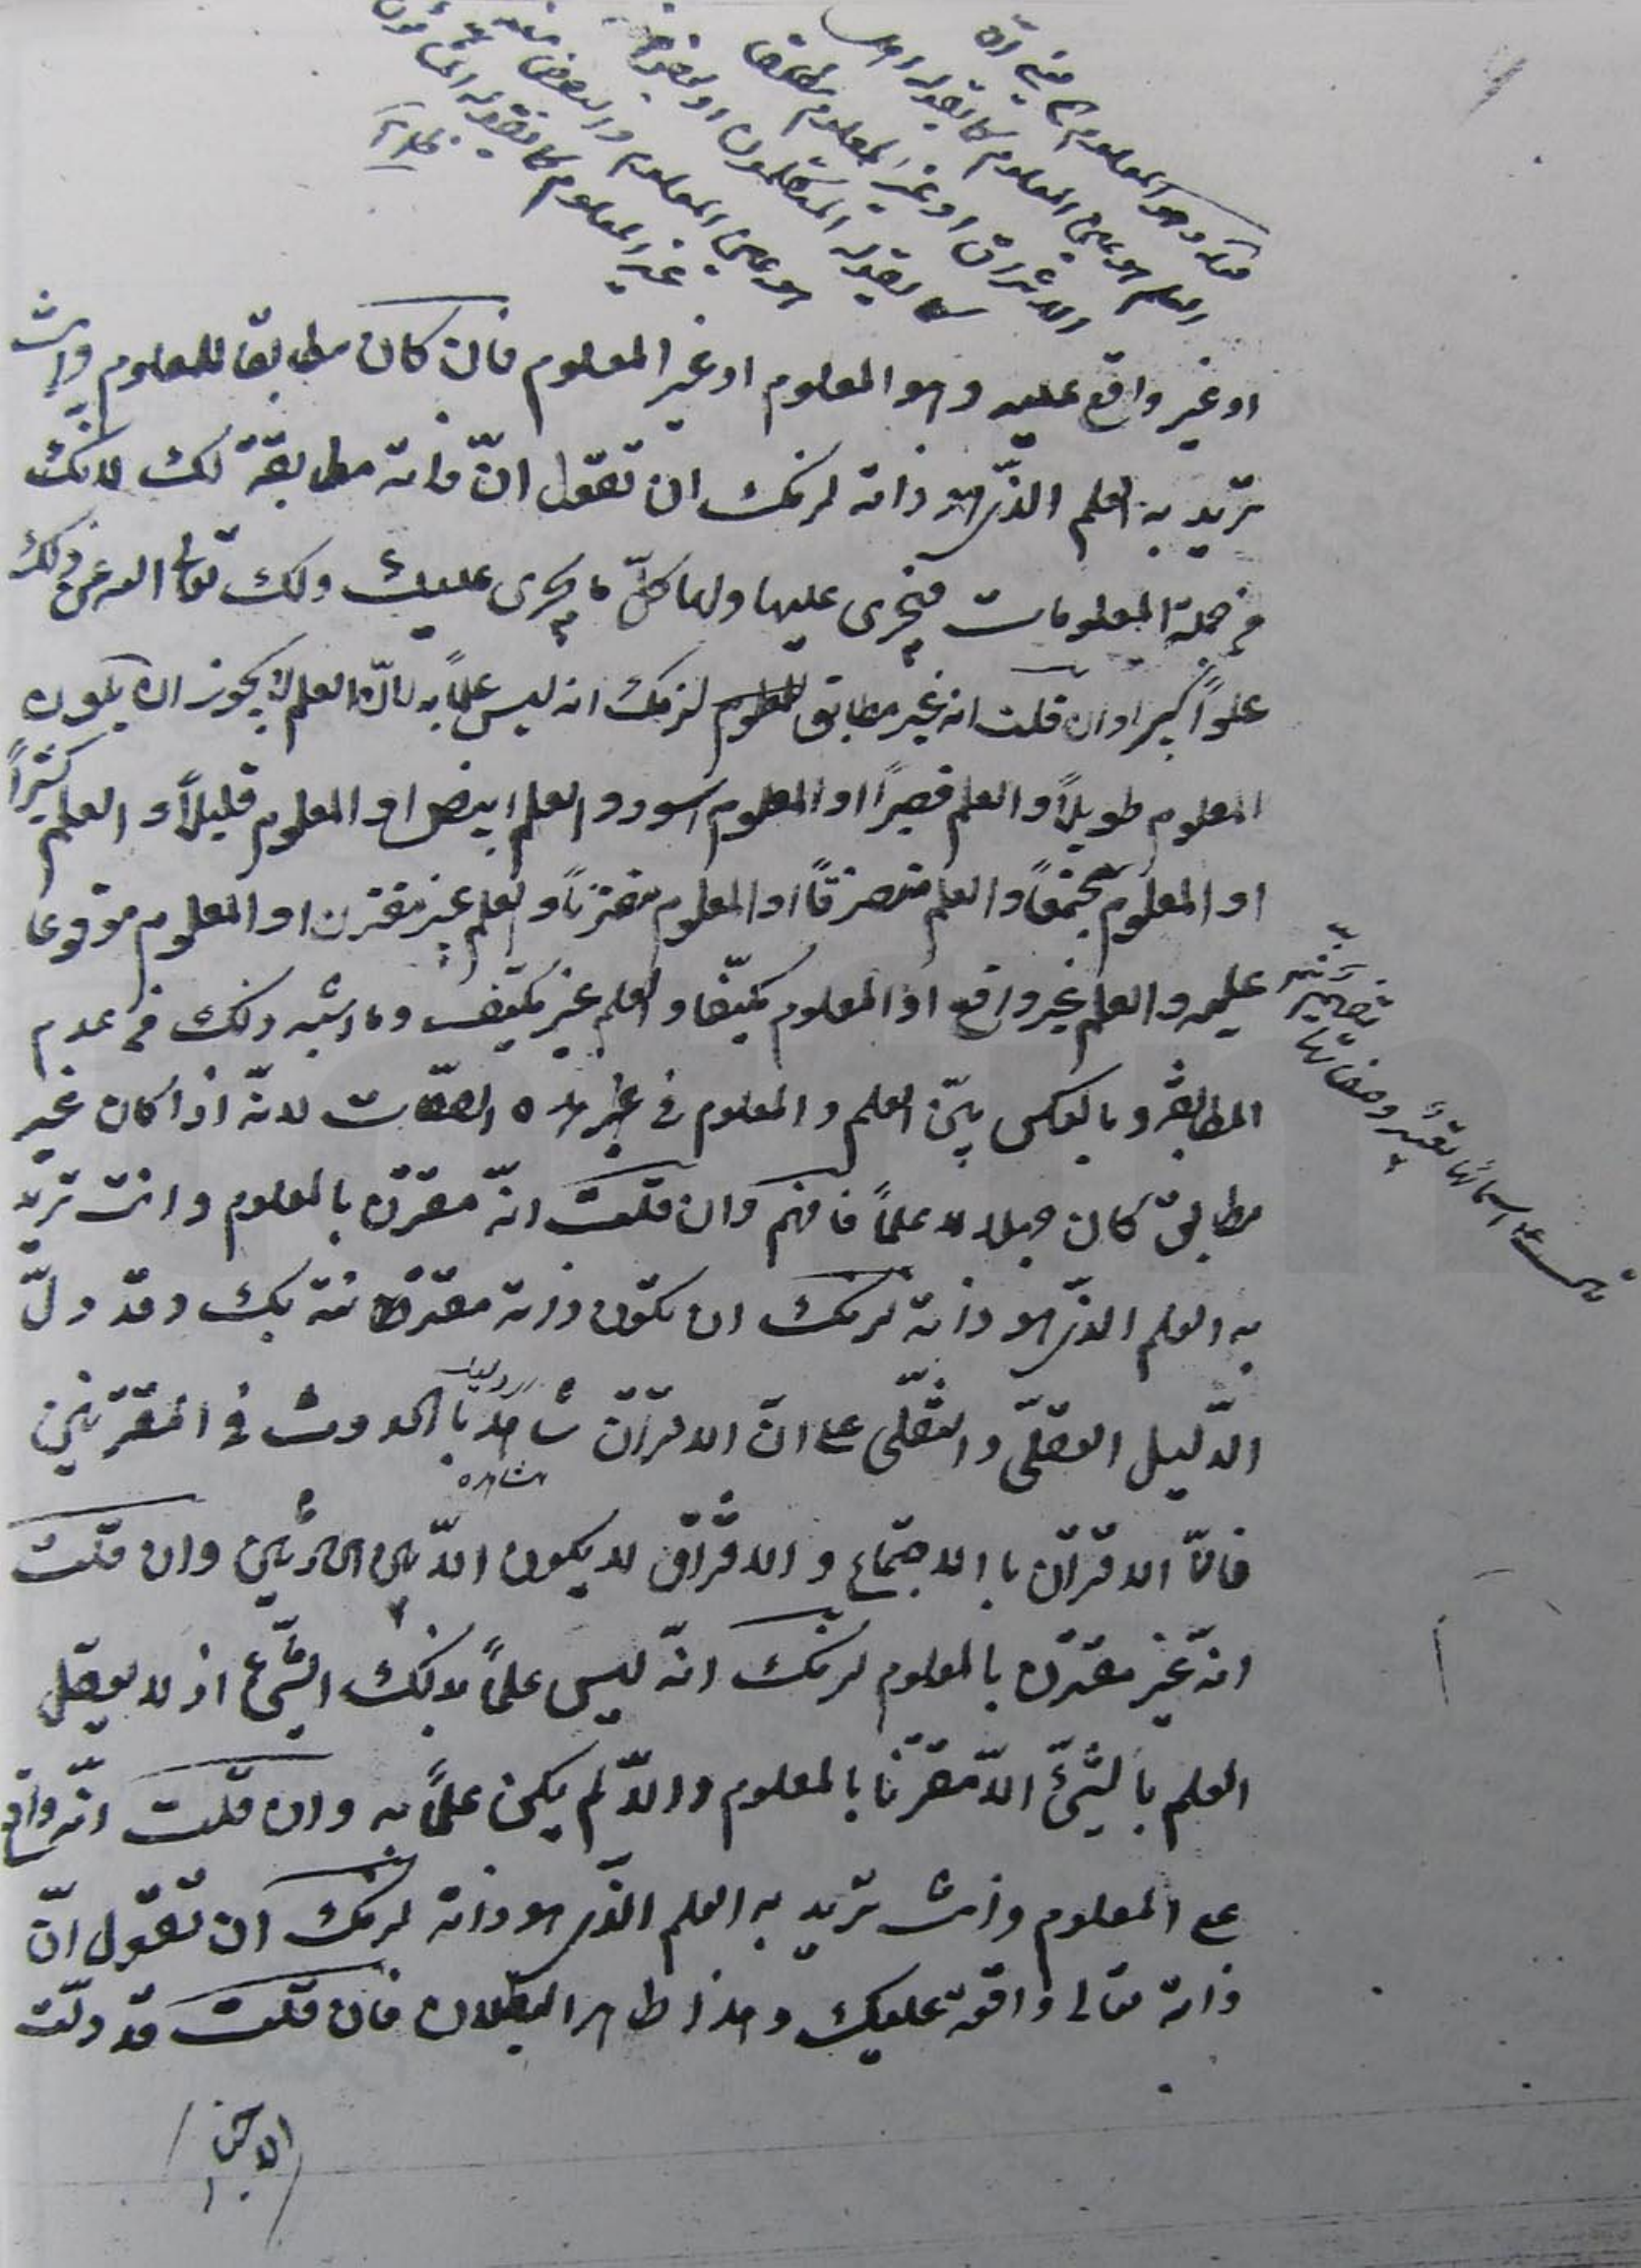 العلم هو عين المعلوم كما يقوله اهل
الاشراق او غير المعلوم مطلقا
كما يقوله المتكلمون او بعضه
هو عين المعلوم والبعض
غير المعلوم كما يقوله
او غير واقع عليه وهو المعلوم او غير المعلوم فان كان مطابقا للمعلوم وانت
تريد به العلم الذي هو ذاته لزمك ان تقول انّ ذاته مطابقة لك لانك
من جملة المعلومات فيجرى عليها ولها كلّ ما يجرى عليك ولك تعالى الله عن ذلك
علواً كبيرا وان قلت انه غير مطابق للمعلوم لزمك انه ليس علماً به لانّ العلم لا يجوز ان يكون
المعلوم طويلاً والعلم قصيراً او المعلوم اسود والعلم ابيض او المعلوم قليلاً والعلم كثيراً
او المعلوم مجتمعاً والعلم متفرقاً او المعلوم مقترناً والعلم غير مقترن او المعلوم موقوعا
عليه والعلم غير واقع او المعلوم مكيّفا والعلم غير مكيّف وما اشبه ذلك من عدم
المطابقة وبالعكس بين العلم والمعلوم في غير هذه الصفات لانّه اذا كان غير
مطابق كان جهلا لا علماً فافهم وان قلت انّه مقترن بالمعلوم وانت تريد
به العلم الذي هو ذاته لزمك ان تكون ذاته مقترنة بك وقد دلّ
الدّليل العقلىّ والنقلى على انّ الاقتران شاهد بالحدوث في المقترنين
فانّ الاقتران با الاجتماع و الافتراق لا يكون الّا بين الحادثين وان قلت
انه غير مقترن بالمعلوم لزمك انّه ليس علماً لذلك الشىء اذ لا يعقل
العلم بالشىء الّا مقترنا بالمعلوم والّا لم يكن علماً به وان قلت انّه واقع
على المعلوم وانت تريد به العلم الذي هو ذاته لزمك ان تقول انّ
ذاته تعالى واقعة عليك وهذا ظاهر البطلان فان قلت قد دلّت